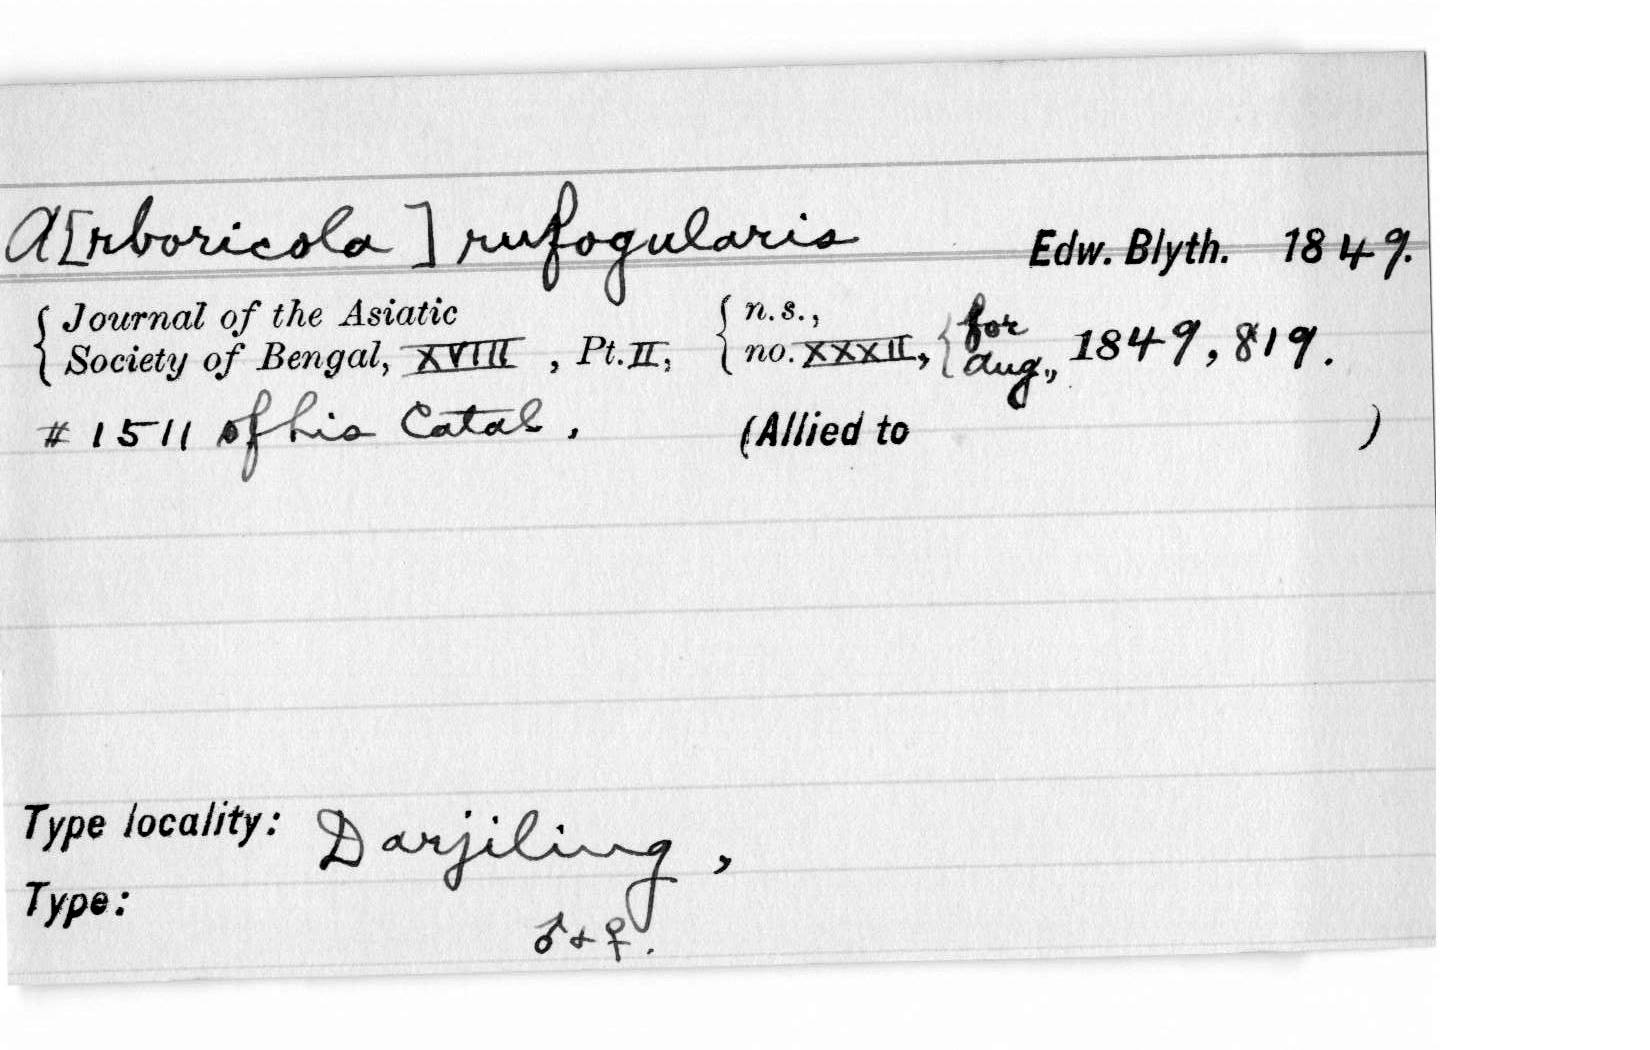 A[rboricola] rufogularis Edw. Blyth. 1849.
{ Journal of the Asiatic { n.s., { for
Society of Bengal, XVIII, Pt. II, no. XXXII, Aug., 1849, 819.
# 1511 of his Catal. (Allied to )
Type locality: Darjiling,
Type:
♂ + ♀.